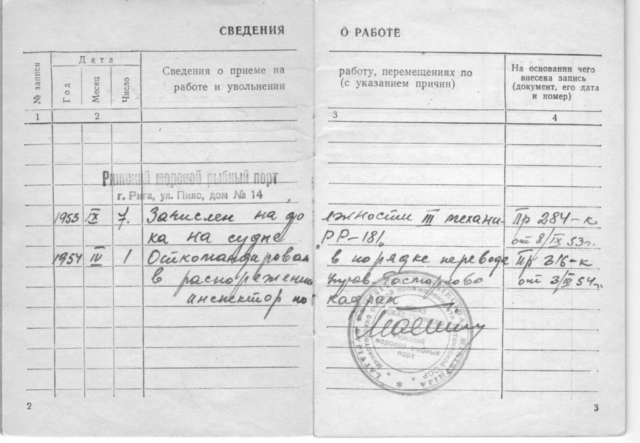 СВЕДЕНИЯ О РАБОТЕ
№ записи
Дата
Год
Месяц
Число
Сведения о приеме на
работе и увольнении
работу, перемещениях по
(с указанием причин)
На основании чего
внесена запись
(документ, его дата
и номер)
1 2 3 4
Рижский морской рыбный порт
г. Рига, ул. Пивс, дом № 14
1953 IX 7. Зачислен на до лжности III механи Пр 284-к
ка на судне РР-181 от 8/IX 53г.
1954 IV 1 Откомандирован в порядке перевода Пр 316-к
в распоряжение
инспектор по кадрам
2
3